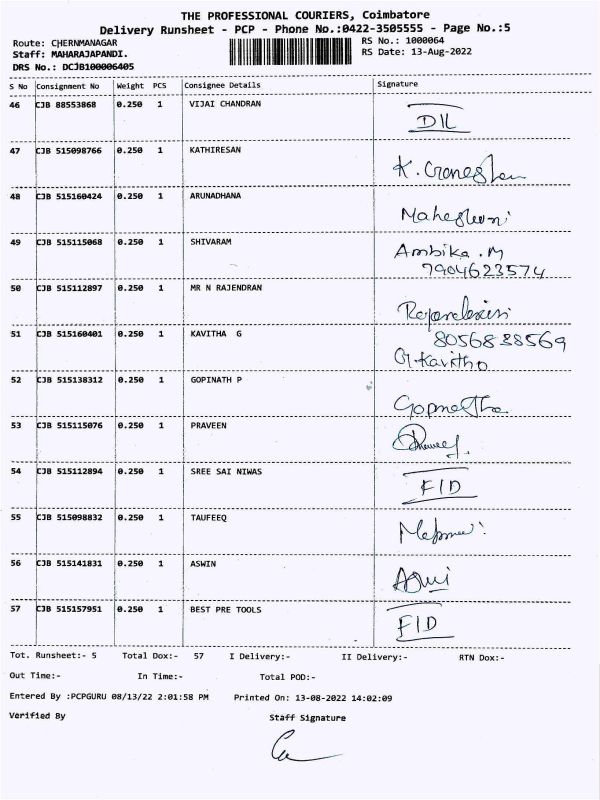 THE PROFESSIONAL COURIERS, Coimbatore
Delivery Runsheet - PCP - Phone No.:0422-3505555 - Page No.:5
Route: CHERNMANAGAR RS No.: 1000064
Staff: MAHARAJAPANDI. RS Date: 13-Aug-2022
DRS No.: DCJB100006405
S No Consignment No Weight PCS Consignee Details Signature
46 CJB 88553868 0.250 1 VIJAI CHANDRAN
D/L
47 CJB 515098766 0.250 1 KATHIRESAN
K.
48 CJB 515160424 0.250 1 ARUNADHANA
Maheshwari
49 CJB 515115068 0.250 1 SHIVARAM
Ambika.M
7904623574
50 CJB 515112897 0.250 1 MR N RAJENDRAN
51 CJB 515160401 0.250 1 KAVITHA G
8056838569
G.Kavitha
52 CJB 515138312 0.250 1 GOPINATH P
53 CJB 515115076 0.250 1 PRAVEEN
54 CJB 515112894 0.250 1 SREE SAI NIWAS
F/D
55 CJB 515098832 0.250 1 TAUFEEQ
56 CJB 515141831 0.250 1 ASWIN
57 CJB 515157951 0.250 1 BEST PRE TOOLS
F/D
Tot. Runsheet:- 5 Total Dox:- 57 I Delivery:- II Delivery:- RTN Dox:-
Out Time:- In Time:- Total POD:-
Entered By :PCPGURU 08/13/22 2:01:58 PM Printed On: 13-08-2022 14:02:09
Verified By Staff Signature